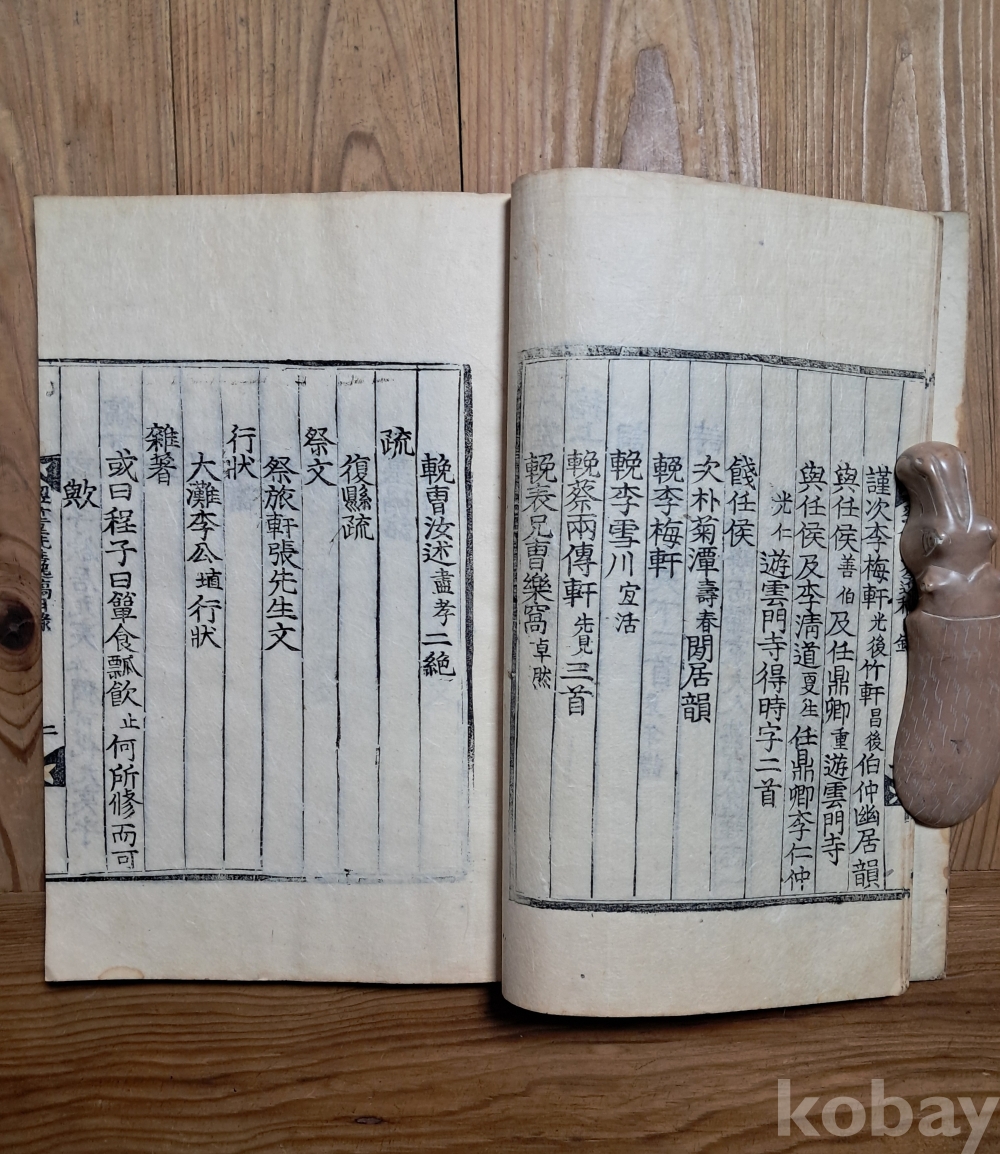 謹次李梅軒光後竹軒昌後伯仲幽居韻
與任侯善伯及任鼎卿重遊雲門寺
與任侯及李淸道夏生任鼎卿李仁仲
光仁遊雲門寺得時字二首
餞任侯
次朴菊潭壽春閒居韻
輓李梅軒
輓李雪川宜活
輓蔡兩傳軒先見三首
輓表兄曺樂窩卓然
輓曺汝述盡孝二絶
疏
復縣疏
祭文
祭旅軒張先生文
行狀
大灘李公埴行狀
雜著
或曰程子曰簞食瓢飮止何所修而可
歟
目錄
二
kobay